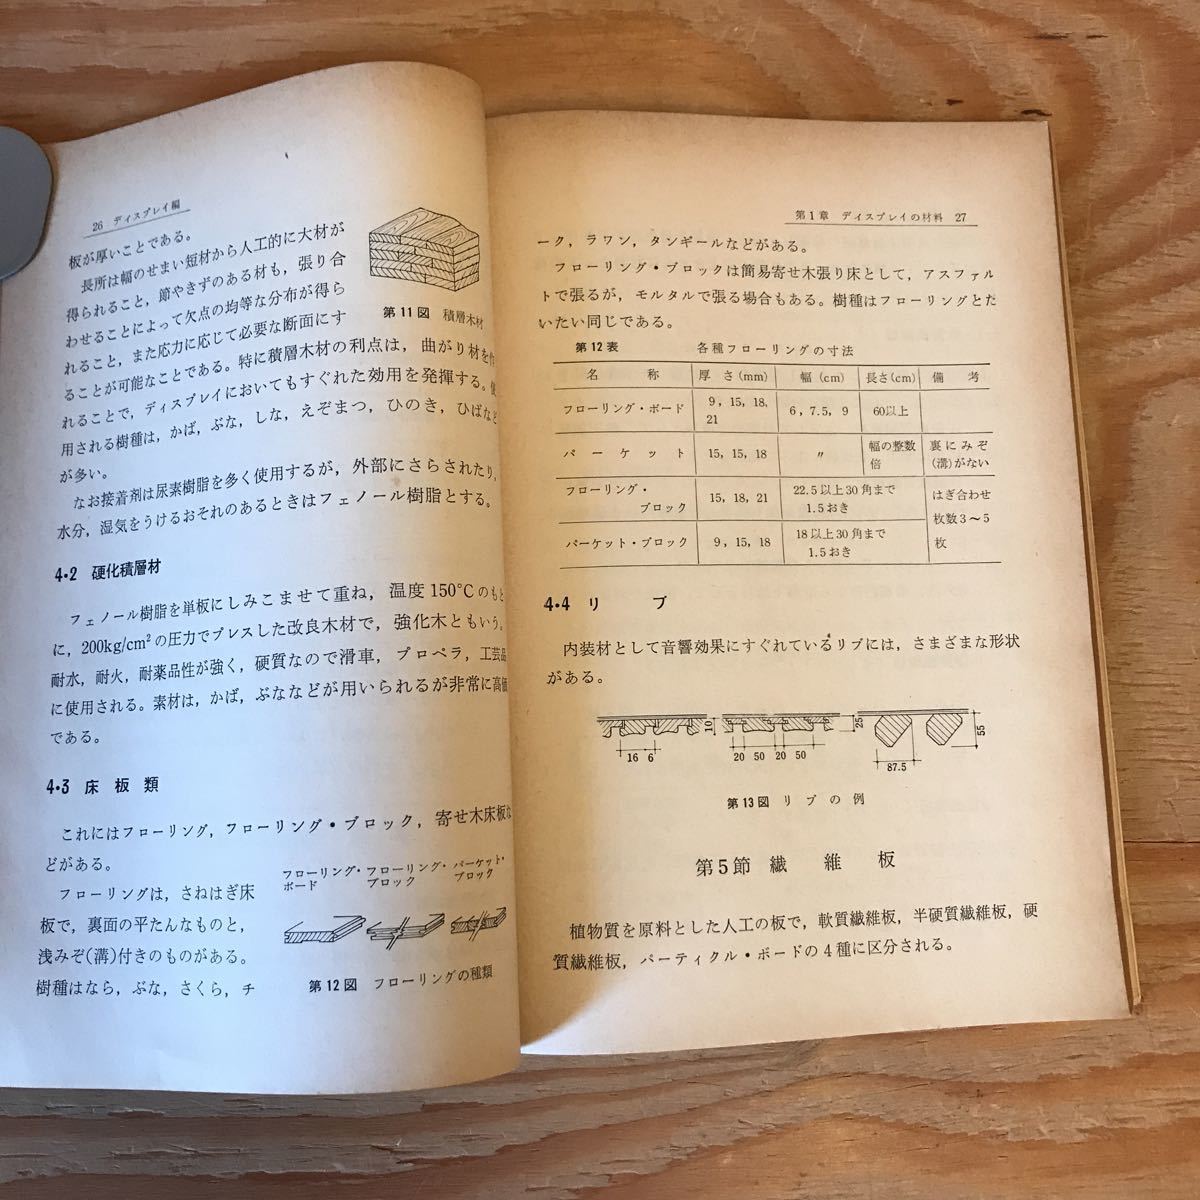 26 ディスプレイ編
板が厚いことである。
長所は幅のせまい短材から人工的に大材が
得られること，節やきずのある材も，張り合
わせることによって欠点の均等な分布が得ら
れること，また応力に応じて必要な断面にす
ることが可能なことである。特に積層木材の利点は，曲がり材を作
れることで，ディスプレイにおいてもすぐれた効用を発揮する。使
用される樹種は，かば，ぶな，しな，えぞまつ，ひのき，ひばなど
が多い。
第11図 積層木材
なお接着剤は尿素樹脂を多く使用するが，外部にさらされたり，
水分，湿気をうけるおそれのあるときはフェノール樹脂とする。
4・2 硬化積層材
フェノール樹脂を単板にしみこませて重ね，温度150°Cのもと
に，200kg/cm²の圧力でプレスした改良木材で，強化木ともいう。
耐水，耐火，耐薬品性が強く，硬質なので滑車，プロペラ，工芸品
に使用される。素材は，かば，ぶななどが用いられるが非常に高価
である。
4・3 床板類
これにはフローリング，フローリング・ブロック，寄せ木床板な
どがある。
フローリングは，さねはぎ床
板で，裏面の平たんなものと，
浅みぞ(溝)付きのものがある。
樹種はなら，ぶな，さくら，チ
フローリング・ボード
フローリング・ブロック
パーケット・ブロック
第12図 フローリングの種類
第1章 ディスプレイの材料 27
ーク，ラワン，タンギールなどがある。
フローリング・ブロックは簡易寄せ木張り床として，アスファル
トで張るが，モルタルで張る場合もある。樹種はフローリングとだ
いたい同じである。
第12表 各種フローリングの寸法
名称 厚さ(mm) 幅(cm) 長さ(cm) 備考
フローリング・ボード 9，15，18，21 6，7.5，9 60以上
パーケット 15，15，18 〃 幅の整数倍 裏にみぞ(溝)がない
フローリング・ブロック 15，18，21 22.5以上30角まで1.5おき はぎ合わせ枚数3〜5枚
パーケット・ブロック 9，15，18 18以上30角まで1.5おき
4・4 リブ
内装材として音響効果にすぐれているリブには，さまざまな形状
がある。
10 25 55
16 6 20 50 20 50 87.5
第13図 リブの例
第5節 繊維板
植物質を原料とした人工の板で，軟質繊維板，半硬質繊維板，硬
質繊維板，パーティクル・ボードの4種に区分される。